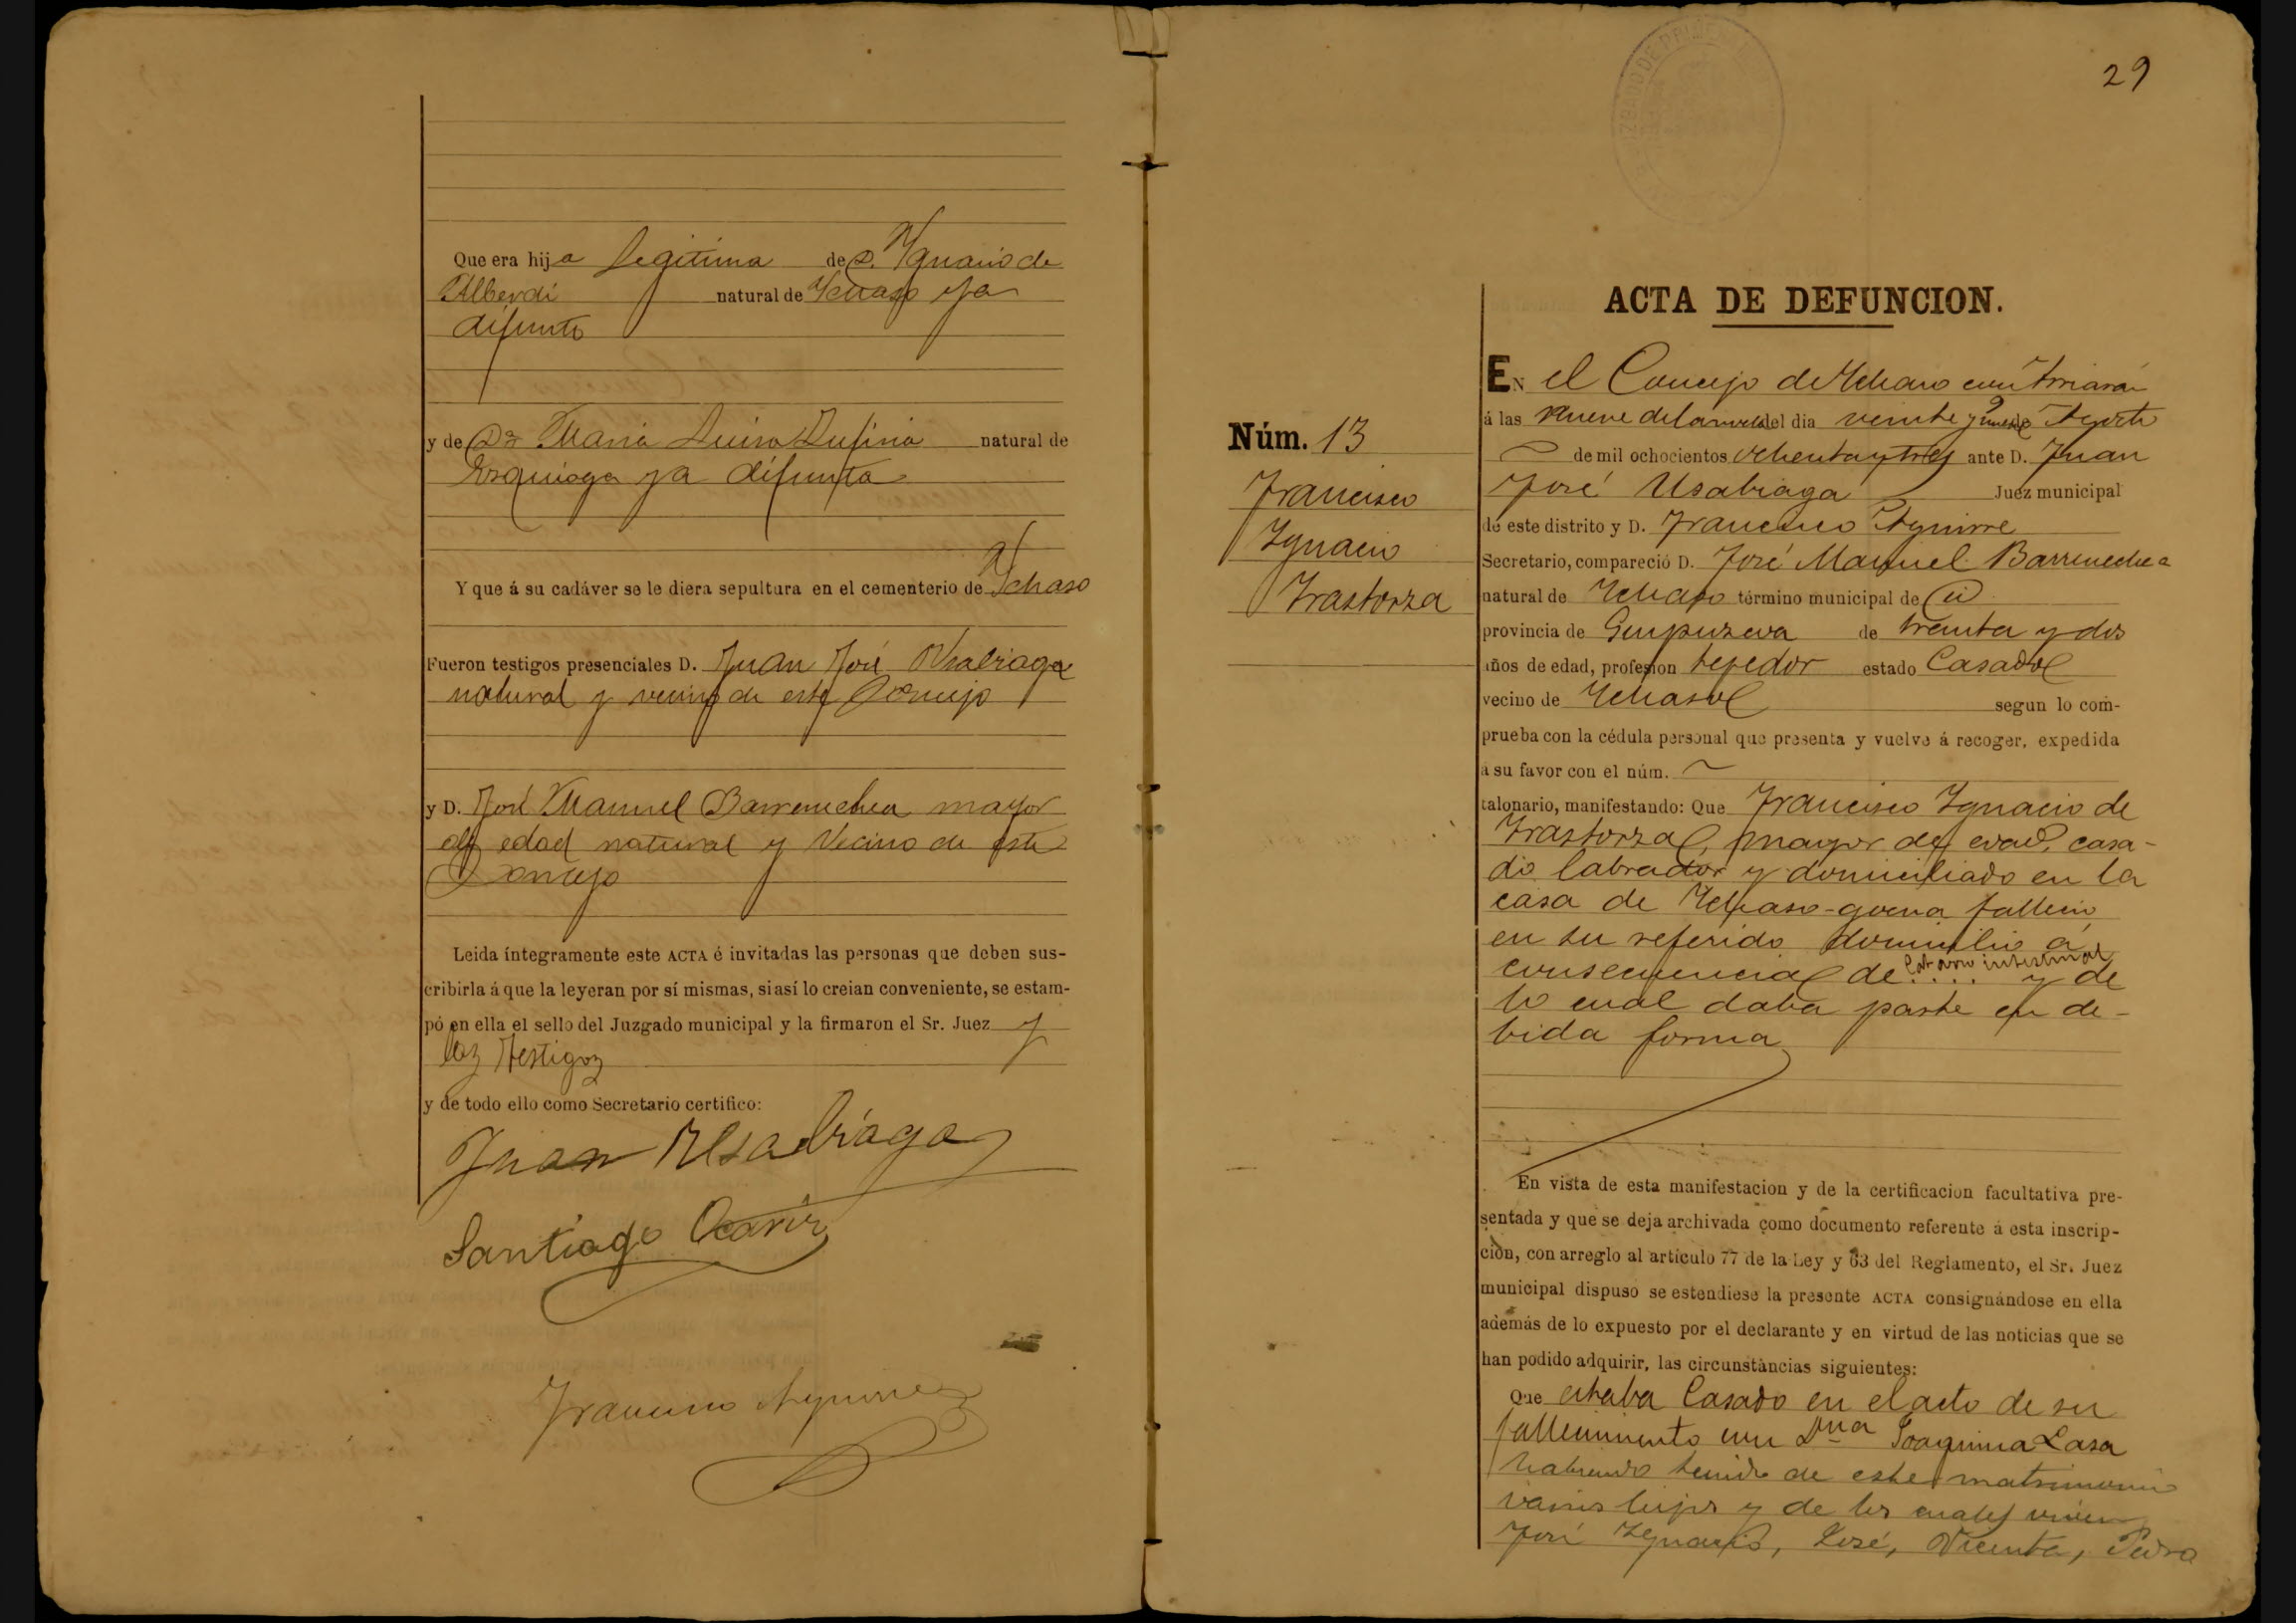 Que era hija legitima de D. Ygnacio de
Alberdi natural de Ychaso ya
difunto
y de Dª Maria Luisa Lufiria natural de
Esquioga ya difunta
Y que á su cadáver se le diera sepultura en el cementerio de Ychaso
Fueron testigos presenciales D. Juan José Usabiaga
natural y vecino de este Concejo
y D. José Manuel Barrenechea mayor
de edad natural y vecino de este
Concejo
Leida íntegramente este ACTA é invitadas las personas que deben sus-
cribirla á que la leyeran por sí mismas, si así lo creian conveniente, se estam-
pó en ella el sello del Juzgado municipal y la firmaron el Sr. Juez y
los Testigos
y de todo ello como Secretario certifico:
Juan Usabiaga
Santiago
Francisco Aguirre
29
ACTA DE DEFUNCION.
Núm. 13
Francisco
Ygnacio
Yrastorza
EN el Concejo de Ychaso con Arriarán
á las nueve de la del dia veinte y nueve de Agosto
de mil ochocientos ochenta y tres ante D. Juan
José Usabiaga Juez municipal
de este distrito y D. Francisco Aguirre
Secretario, compareció D. José Manuel Barrenechea
natural de Ychaso término municipal de id
provincia de Guipuzcoa de treinta y dos
años de edad, profesion tejedor estado Casado
vecino de Ychaso segun lo com-
prueba con la cédula personal que presenta y vuelve á recoger, expedida
a su favor con el núm.
talonario, manifestando: Que Francisco Ygnacio de
Yrastorza, mayor de edad, casa-
do labrador y domiciliado en la
casa de Ychaso-goena fallecio
en su referido domicilio á
consecuencia de Catarro intestinal .... y de
lo cual daba parte en de-
bida forma
En vista de esta manifestacion y de la certificacion facultativa pre-
sentada y que se deja archivada como documento referente á esta inscrip-
cion, con arreglo al artículo 77 de la Ley y 63 del Reglamento, el Sr. Juez
municipal dispuso se estendiese la presente ACTA consignándose en ella
además de lo expuesto por el declarante y en virtud de las noticias que se
han podido adquirir, las circunstancias siguientes:
Que estaba Casado en el acto de su
fallecimiento con Dna Joaquina Lasa
habiendo tenido de este matrimonio
varios hijos y de los cuales viven
José Ygnacio, José, Vicenta, Pedro